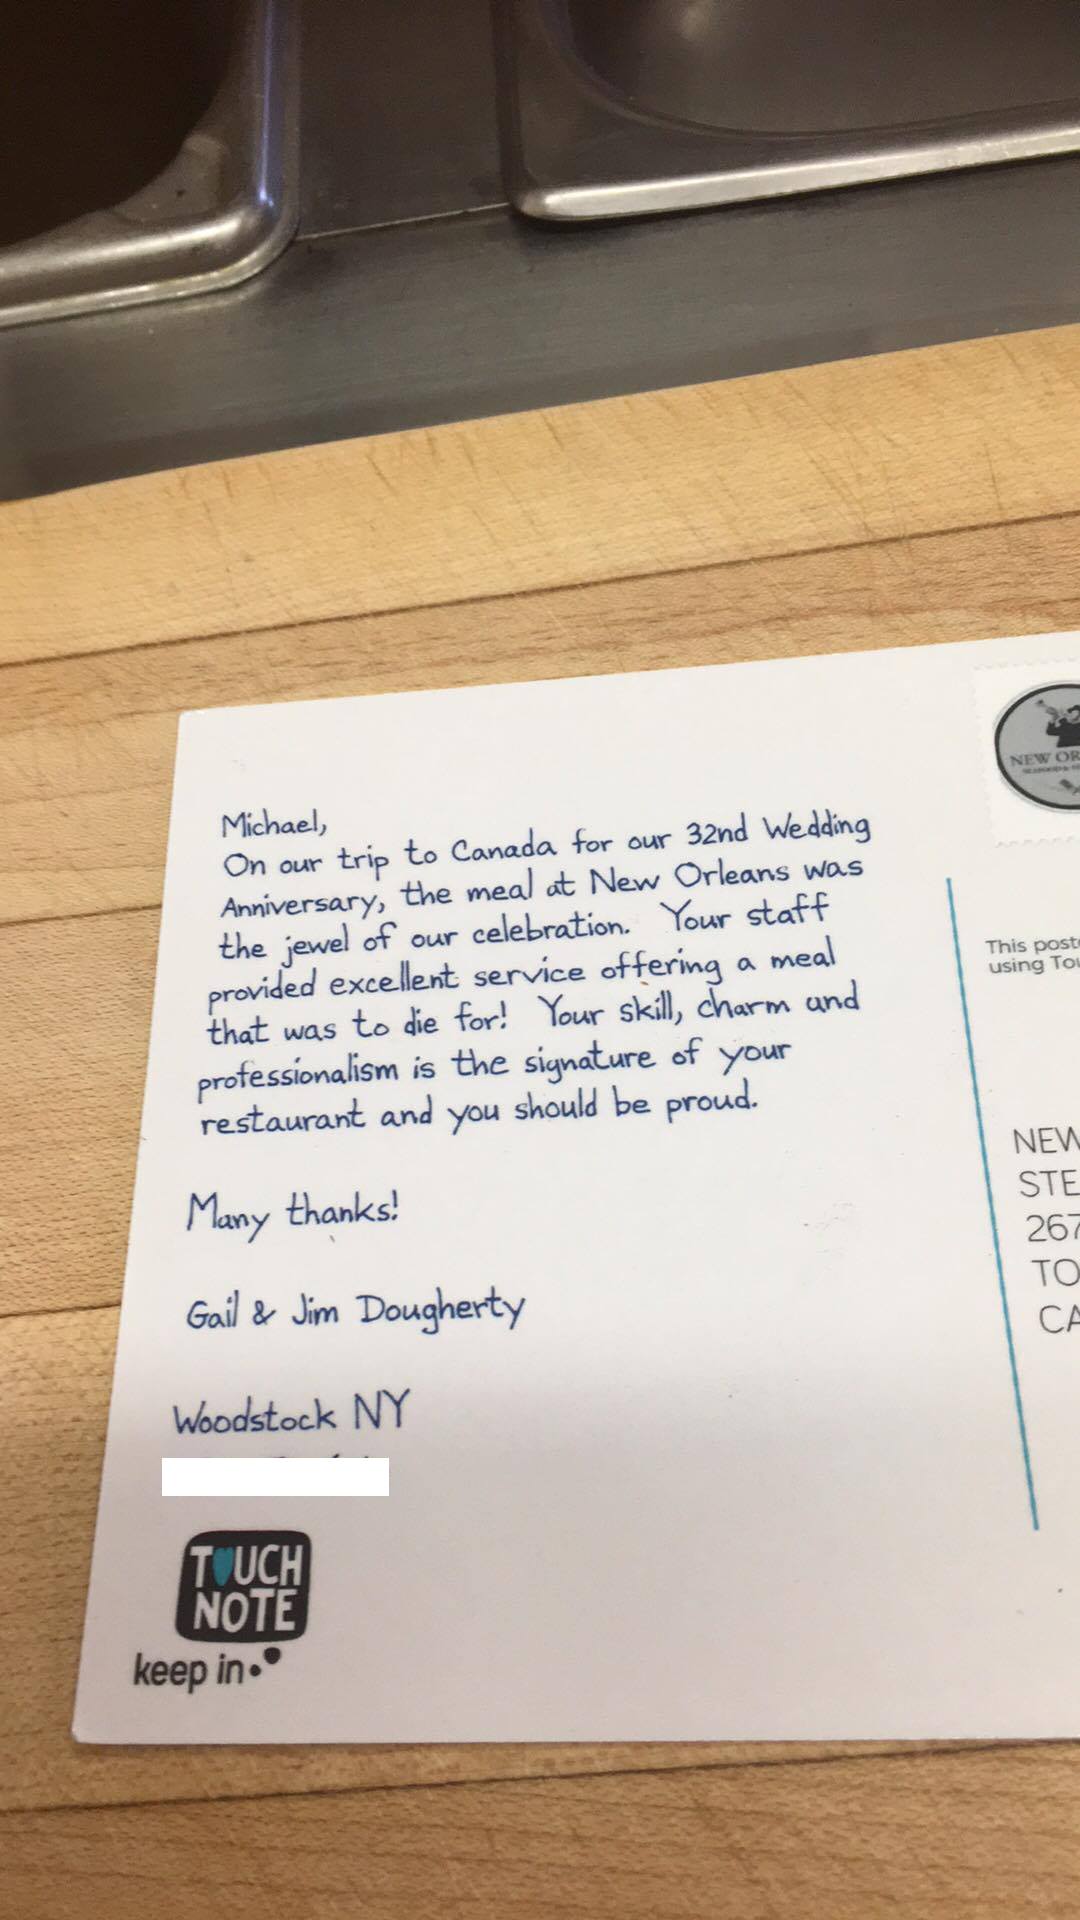 Michael,
On our trip to Canada for our 32nd Wedding
Anniversary, the meal at New Orleans was
the jewel of our celebration. Your staff
provided excellent service offering a meal
that was to die for! Your skill, charm and
professionalism is the signature of your
restaurant and you should be proud.
Many thanks!
Gail & Jim Dougherty
Woodstock NY
TOUCH
NOTE
keep in
NEW OR
This post
using Tou
NEW
STE
267
TO
CA